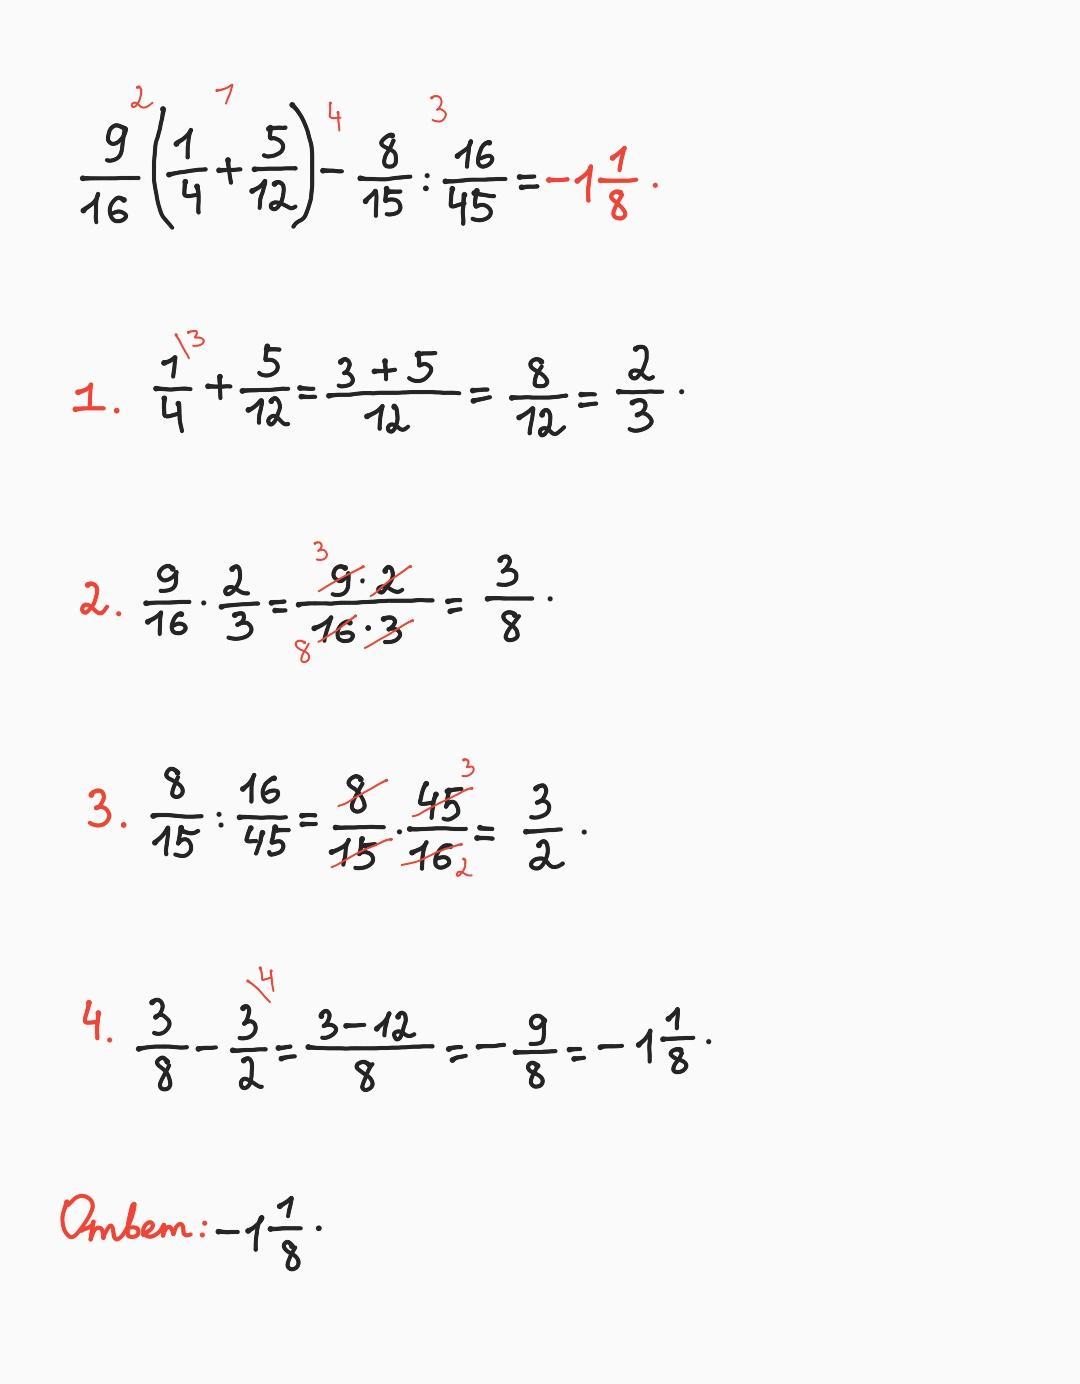 2 1 4 3
9/16 (1/4 + 5/12) - 8/15 : 16/45 = -1 1/8.
1. 1/4 \3 + 5/12 = (3 + 5)/12 = 8/12 = 2/3.
2. 9/16 · 2/3 = (3 9 · 2)/(8 16 · 3) = 3/8.
3. 8/15 : 16/45 = 8/15 · 45 3/16 2 = 3/2.
4. 3/8 - 3/2 \4 = (3 - 12)/8 = - 9/8 = - 1 1/8.
Ответ: -1 1/8.